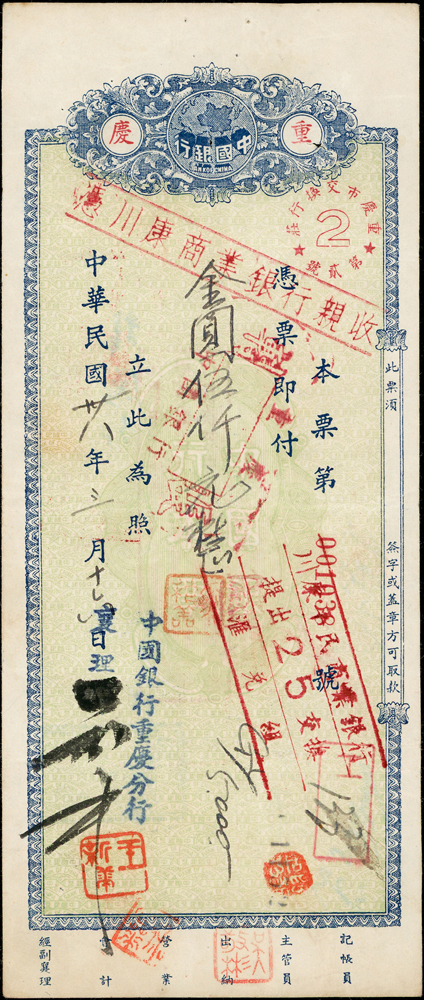 重
慶
中國銀行
BANK OF CHINA
重慶市交換行莊
2
第貳號
憑川康商業銀行親收
此票須
簽字或蓋章方可取款
本票第 號
001038
憑票即付
金圓伍仟元整
立此為照
中華民國卅八年三月十七日
襄理
中國銀行重慶分行
提出25交換
匯兌組
$5,000
王新華
記帳員
主管員
出納
營業
會計
經副襄理